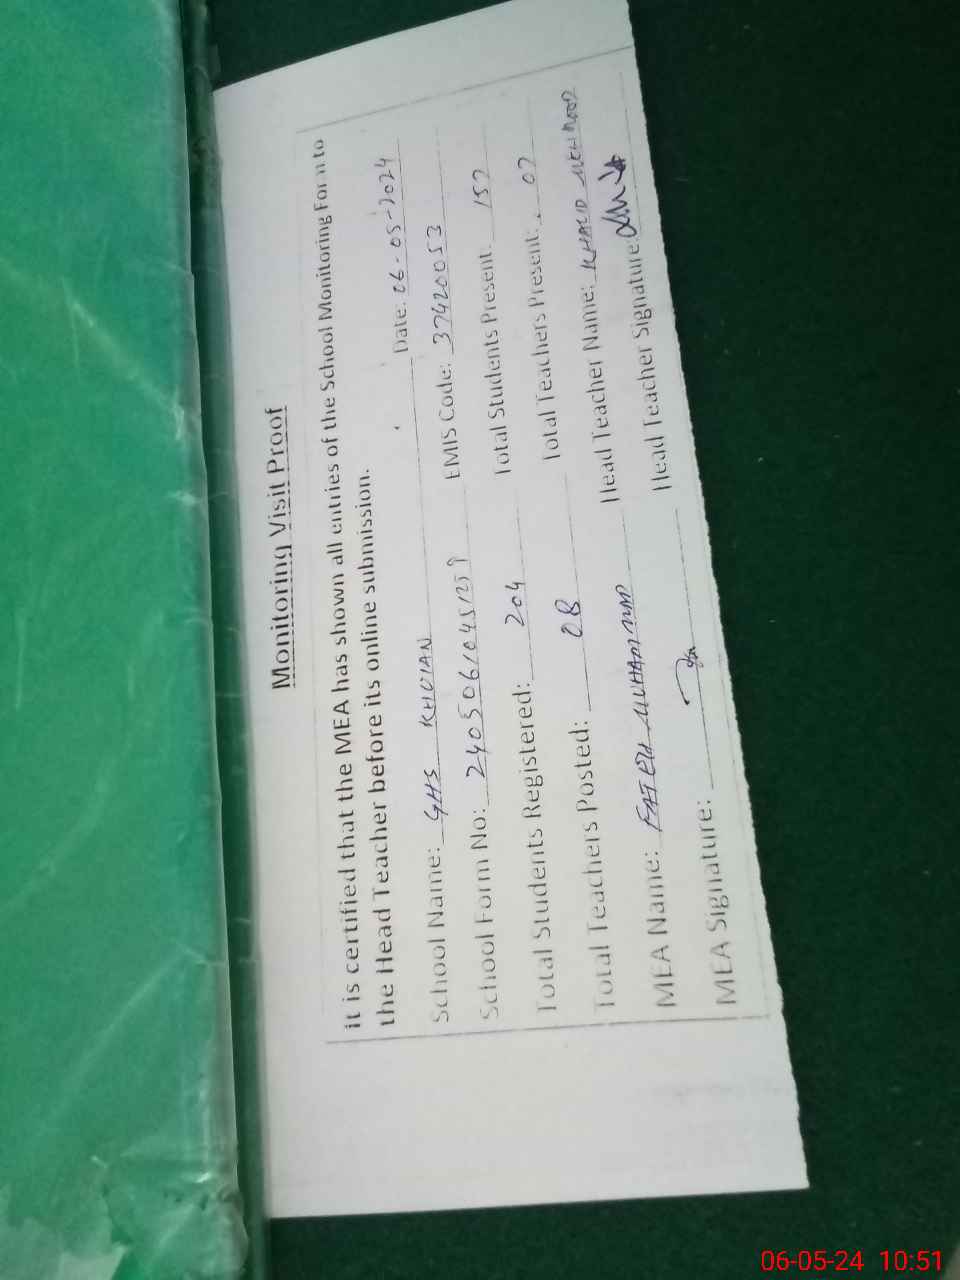 Monitoring Visit Proof
it is certified that the MEA has shown all entries of the School Monitoring Form to
the Head Teacher before its online submission.
School Name: GHS KHOIAN Date: 06-05-2024
School Form No: EMIS Code: 37420053
Total Students Registered: 204 Total Students Present: 157
Total Teachers Posted: 08 Total Teachers Present: 07
MEA Name: FATEH MUHAMMAD Head Teacher Name: KHALID MEHMOOD
MEA Signature: Head Teacher Signature:
06-05-24 10:51